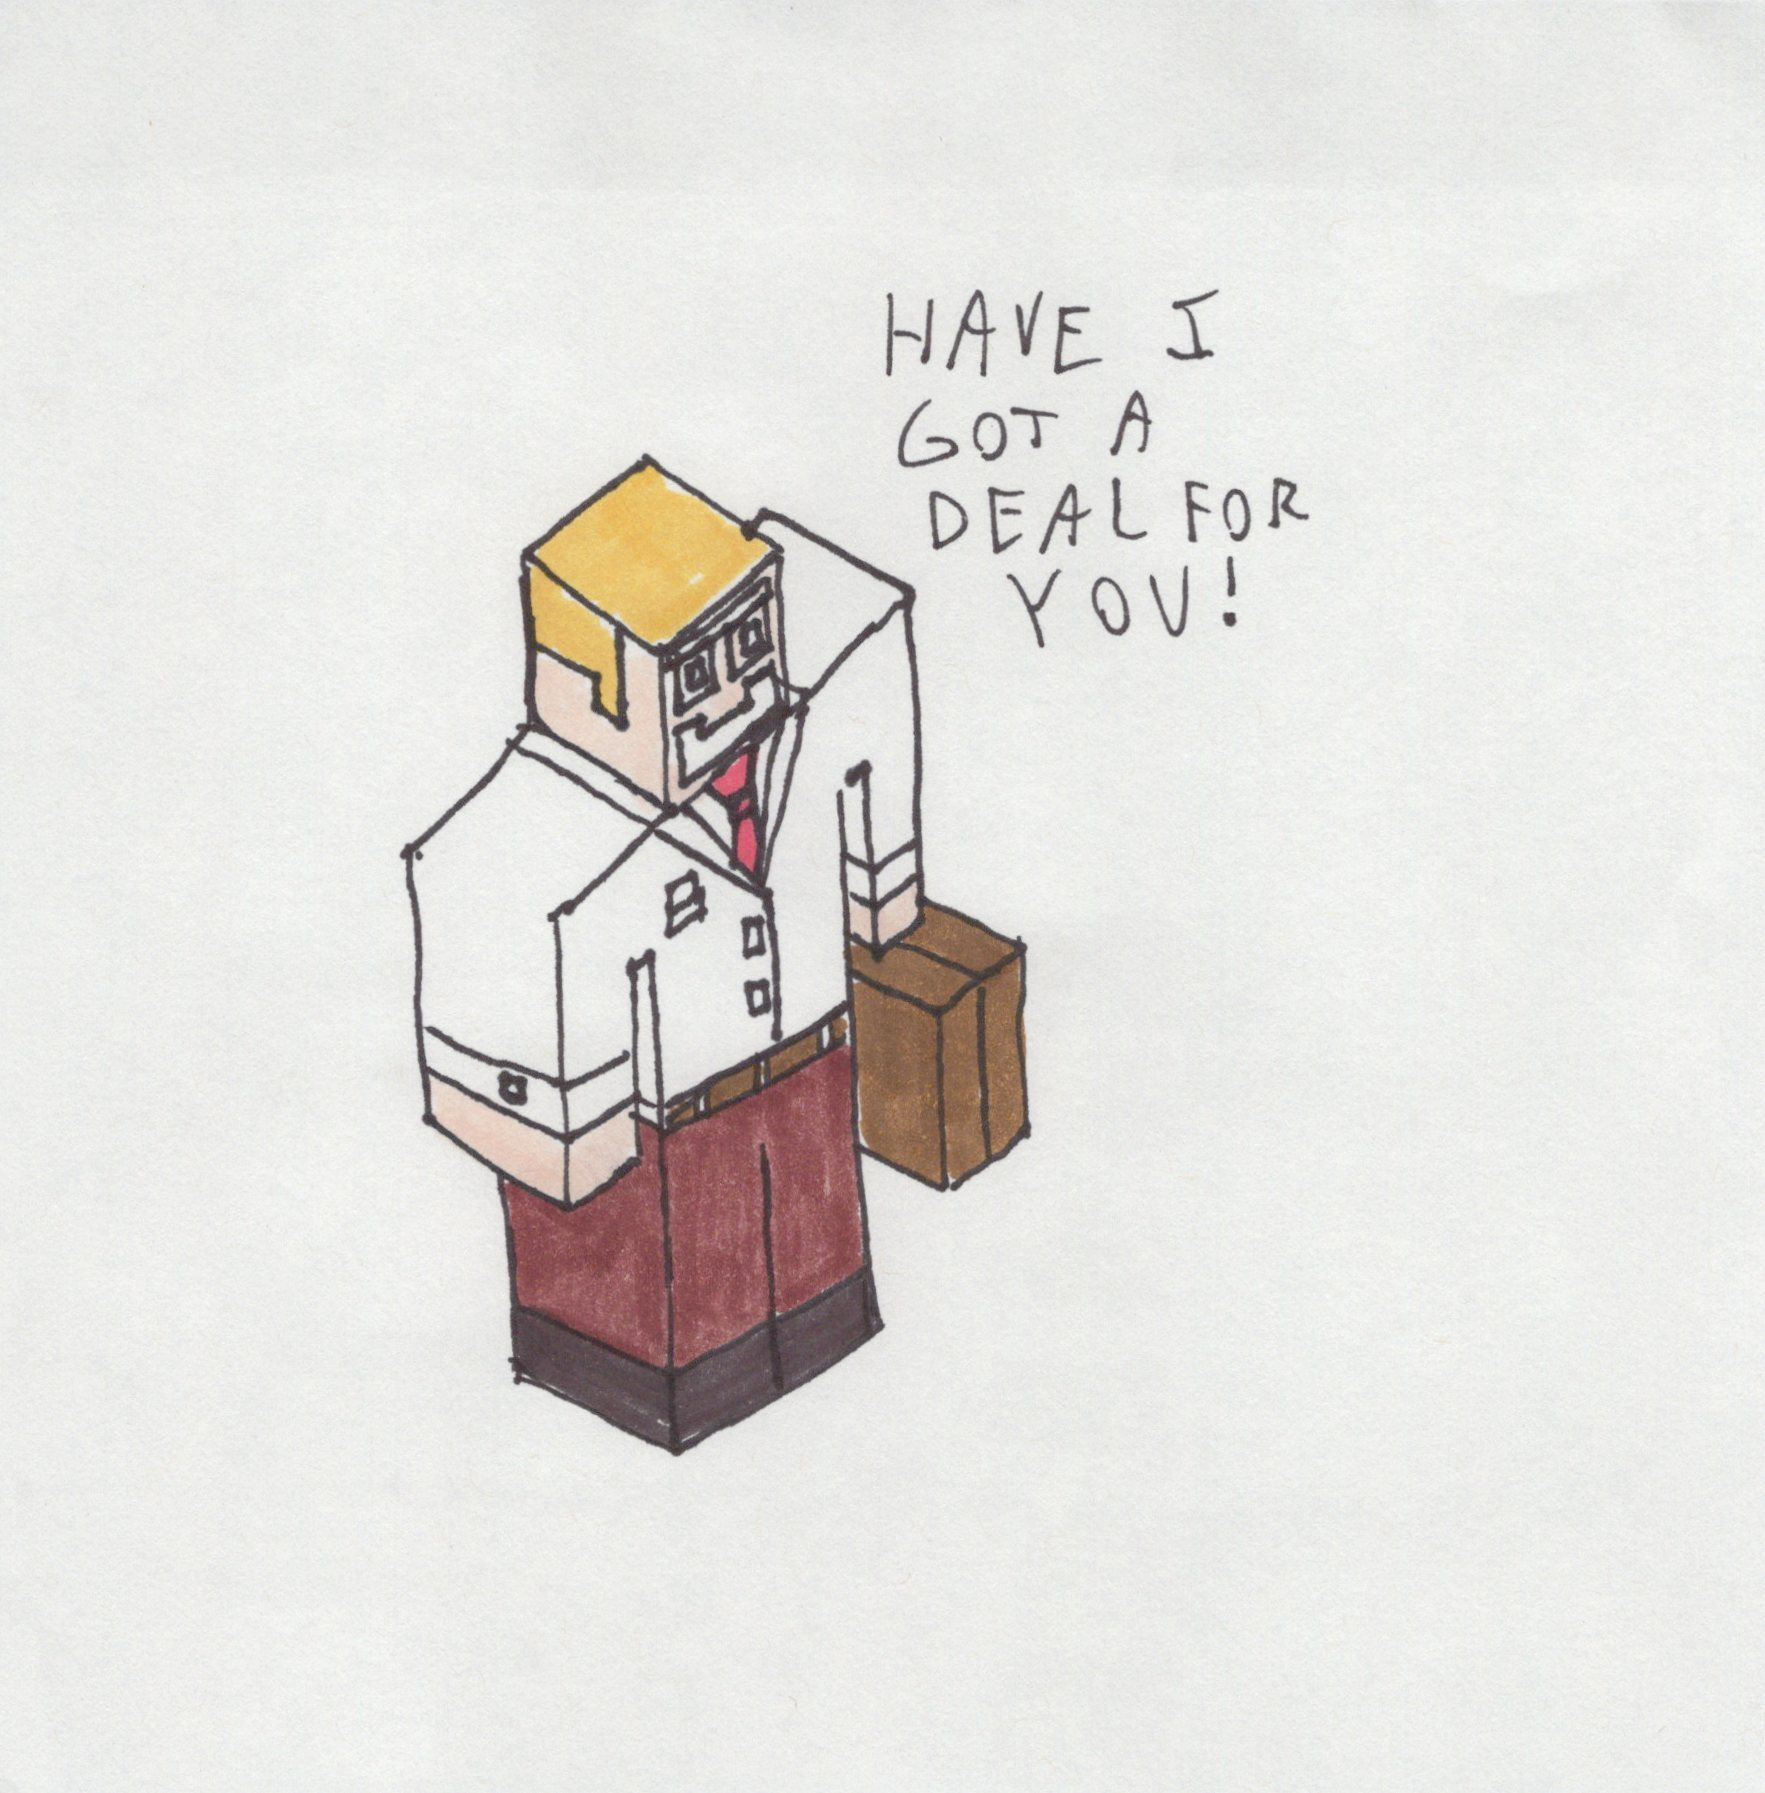 HAVE I
GOT A
DEAL FOR
YOU!